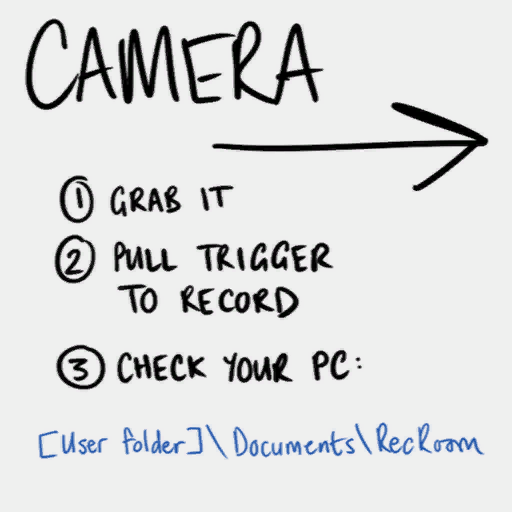 CAMERA
① GRAB IT
② PULL TRIGGER
TO RECORD
③ CHECK YOUR PC:
[User folder]\Documents\RecRoom